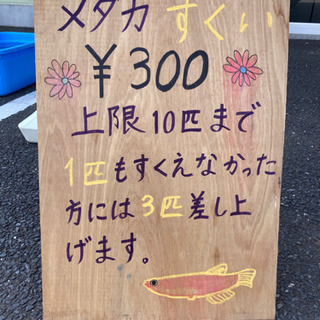 メダカすくい
¥300
上限10匹まで
1匹もすくえなかった
方には3匹差し上
げます。